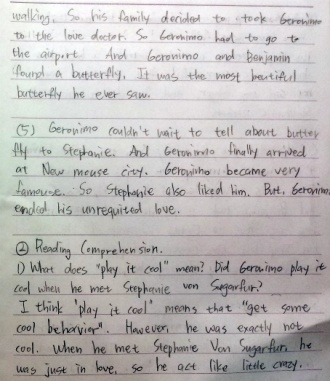 walking. So his family decided to took Geronimo
to the love doctor. So Geronimo had to go to
the airport. And Geronimo and Benjamin
found a butterfly. It was the most beutiful
butterfly he ever saw.
(5) Geronimo couldn't wait to tell about butter
fly to Stephanie. And Geronimo finally arrived
at New mouse city. Geronimo became very
famouse. So Stephanie also liked him. But, Geronimo
ended his unrequited love.
② Reading Comprehension.
1) What does "play it cool" mean? Did Geronimo play it
cool when he met Stephanie von Sugarfur?
I think 'play it cool' means that "get some
cool behavior". However, he was exactly not
cool. When he met Stephanie Von Sugarfur, he
was just in love, so he act like little crazy.